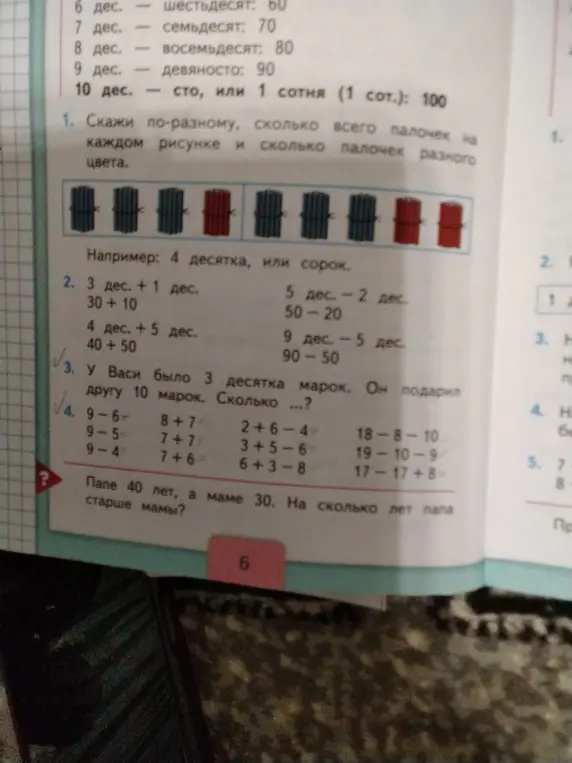 6 дес. — шестьдесят: 60
7 дес. — семьдесят: 70
8 дес. — восемьдесят: 80
9 дес. — девяносто: 90
10 дес. — сто, или 1 сотня (1 сот.): 100
1. Скажи по-разному, сколько всего палочек на
каждом рисунке и сколько палочек разного
цвета.
Например: 4 десятка, или сорок.
2. 3 дес. + 1 дес.
30 + 10
5 дес. − 2 дес.
50 − 20
4 дес. + 5 дес.
40 + 50
9 дес. − 5 дес.
90 − 50
3. У Васи было 3 десятка марок. Он подарил
другу 10 марок. Сколько ...?
4. 9 − 6 8 + 7 2 + 6 − 4 18 − 8 − 10
9 − 5 7 + 7 3 + 5 − 6 19 − 10 − 9
9 − 4 7 + 6 6 + 3 − 8 17 − 17 + 8
? Папе 40 лет, а маме 30. На сколько лет папа
старше мамы?
6
1.
2.
1
3.
4.
5. 7
8